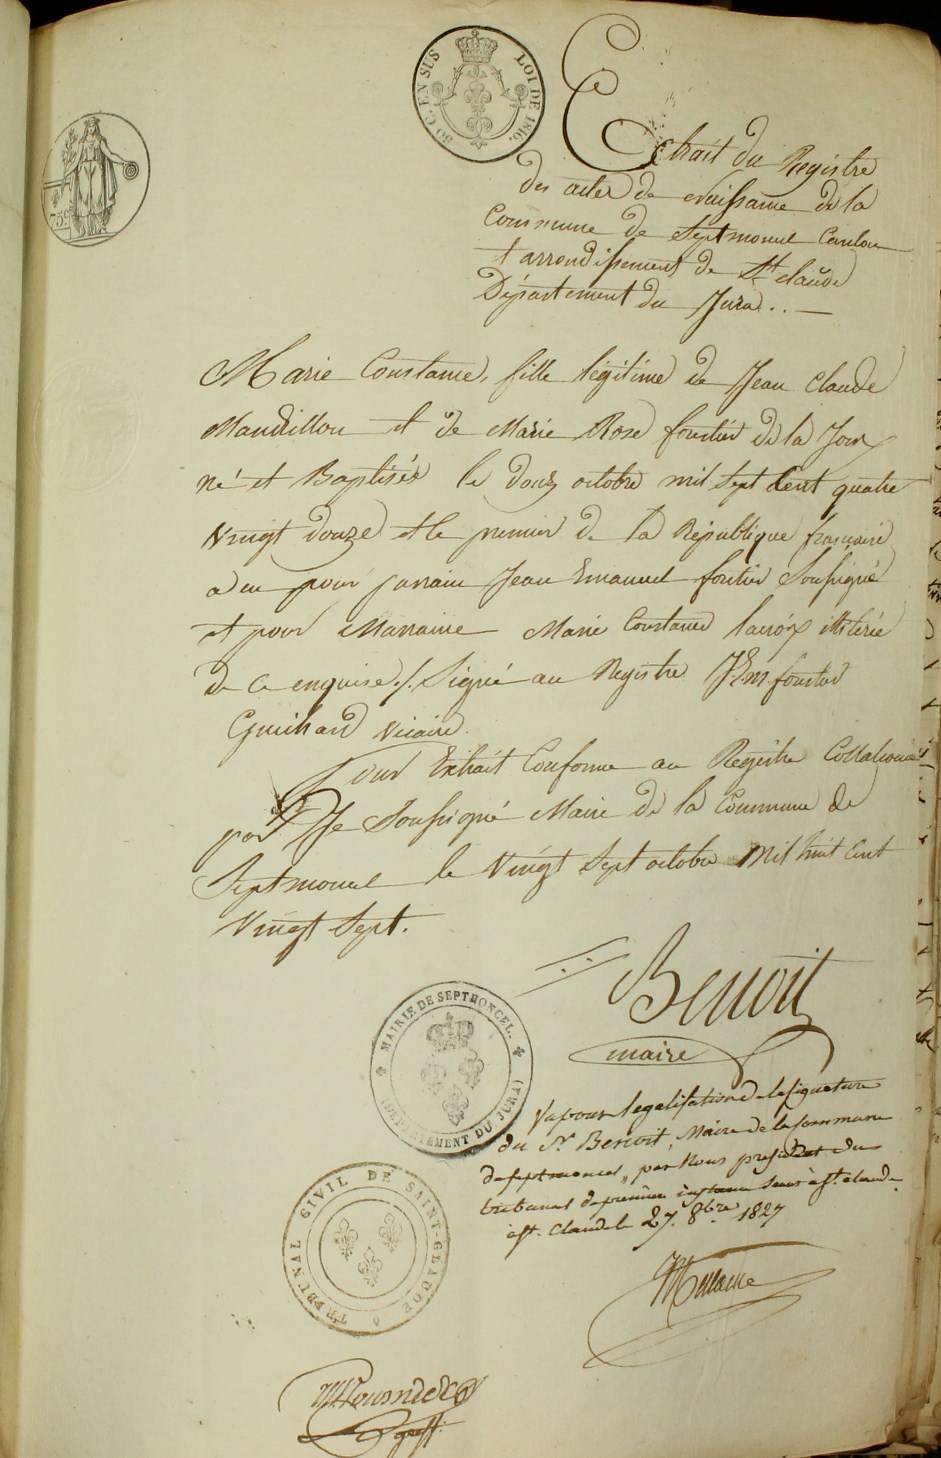 50 C. EN SUS
LOI DE 1816.
Extrait du Registre
des actes de Naissance de la
Commune de Septmoncel Canton
et arrondissement de St claude
Département du Jura . . —
Marie Constance, fille légitime de Jean Claude
Mandrillon et de Marie Rose fournier de la Joux
né et Baptisée le douze octobre mil sept Cent quatre
vingt douze et le premier de la République française
a eu pour parrain Jean Emanuel Soussigné
et pour Marraine Marie Constance lacroix illiterée
de ce enquise ./. Signé au Registre J. Em.
Guichard vicaire.
Pour Extrait Conforme au Registre Collationné
par Je Soussigné Maire de la Commune de
Septmoncel le Vingt Sept octobre Mil huit Cent
Vingt Sept.
Benoit
maire
MAIRIE DE SEPTMONCEL.
(DEPARTEMENT DU JURA)
Vu pour legalisation de la Signature
du Sr. Benoit, Maire de la Commune
de Septmoncel, par Nous president du
tribunal de premiere instance Seant à St. claude.
à St. Claude le 27. 8bre. 1827
TRIBUNAL CIVIL DE SAINT-CLAUDE
greff.